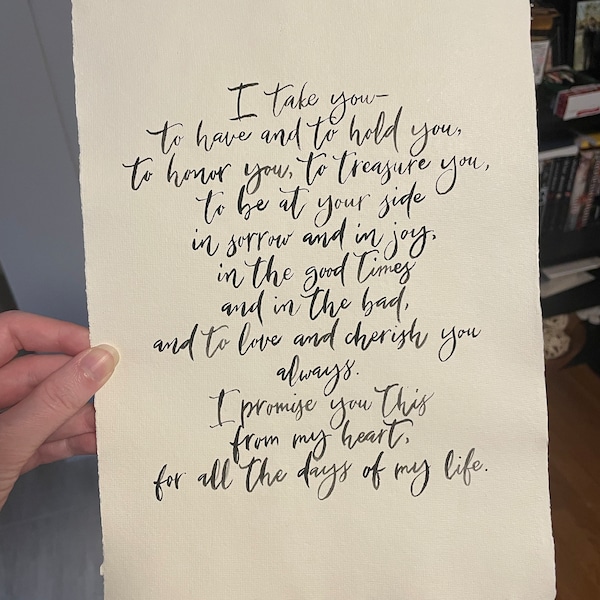 I take you–
to have and to hold you,
to honor you, to treasure you,
to be at your side
in sorrow and in joy,
in the good times
and in the bad,
and to love and cherish you
always.
I promise you this
from my heart,
for all the days of my life.